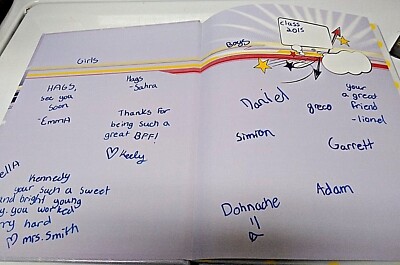 Girls
HAGS,
see you
soon
-EmmA
Hags
-Sahra
Thanks for
being such a
great BPF!
♡Keely
ellA
Kennedy
your such a sweet
and bright young
y. you worked
ry hard
♡ mrs. Smith
Boys
class
2015
Daniel
greco
your
a great
friend
-lionel
Simron
Garrett
Adam
Dohnache